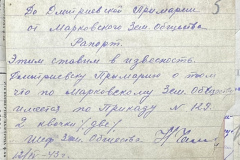 5
До Дмитриевской Примарии
от Марковского Зем. Общества
Рапорт.
Этим ставим в известность
Дмитриевску Примарию о том
что по Марковскому Зем. Обществу
имеется по Приказу № 129.
2 квоки /две/
Шеф Зем. Общества